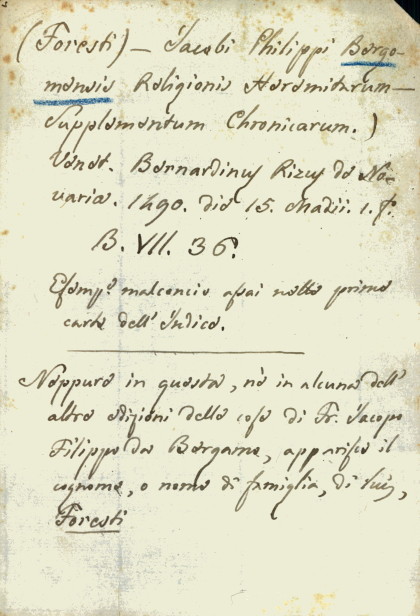 (Foresti) — Jacobi Philippi Bergo-
mensis Religionis Heremitarum —
Supplementum Chronicarum.)
Venet. Bernardinus Rizus de No-
varia. 1490. die 15. Madii. 1. f.
B. VII. 36.
Esemp.º malconcio assai nelle prime
carte dell' Indice.
Neppure in questa, nè in alcuna dell'
altre edizioni delle cose di Fr. Jacopo
Filippo da Bergamo, apparisce il
cognome, o nome di famiglia, di lui,
Foresti